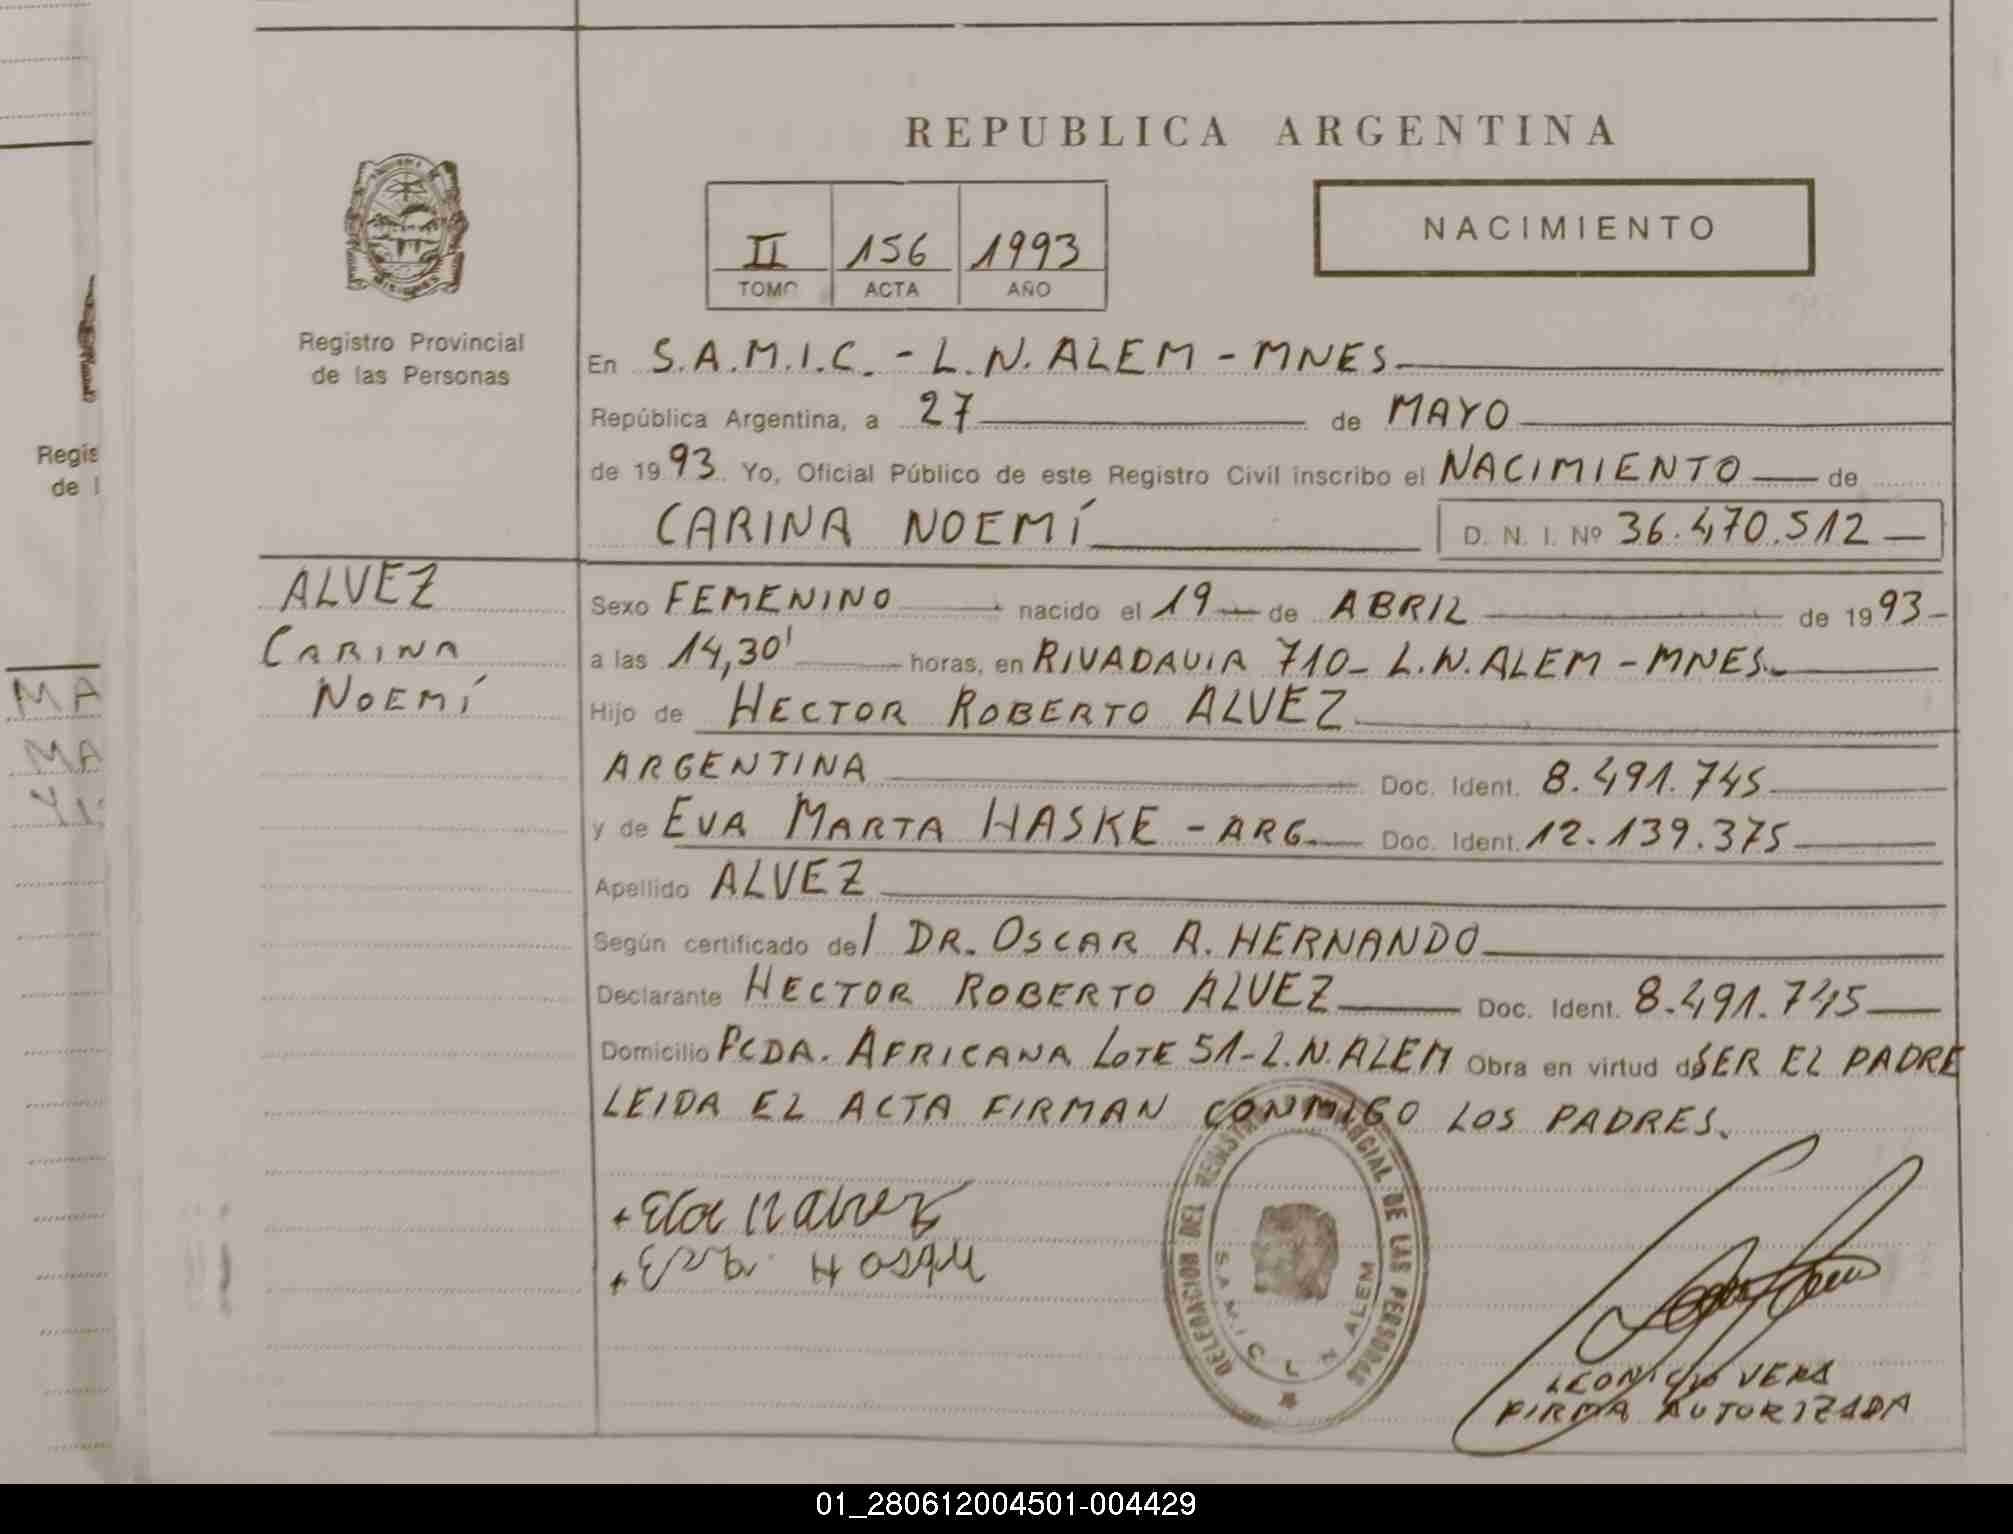 REPUBLICA ARGENTINA
II 156 1993
TOMO ACTA AÑO
NACIMIENTO
Registro Provincial
de las Personas
En S.A.M.I.C. - L.N. ALEM - MNES
República Argentina, a 27 de MAYO
de 1993 Yo, Oficial Público de este Registro Civil inscribo el NACIMIENTO de
CARINA NOEMÍ D. N. I. Nº 36.470.512
ALVEZ
CARINA
NOEMÍ
Sexo FEMENINO nacido el 19 de ABRIL de 1993
a las 14,30' horas, en RIVADAVIA 710 - L.N. ALEM - MNES.
Hijo de HECTOR ROBERTO ALVEZ
ARGENTINA Doc. Ident. 8.491.745
y de EVA MARTA HASKE - ARG. Doc. Ident. 12.139.375
Apellido ALVEZ
Según certificado del DR. OSCAR A. HERNANDO
Declarante HECTOR ROBERTO ALVEZ Doc. Ident. 8.491.745
Domicilio PCDA. AFRICANA LOTE 51 - L.N. ALEM Obra en virtud de SER EL PADRE
LEIDA EL ACTA FIRMAN CONMIGO LOS PADRES.
DELEGACION DEL REGISTRO PROVINCIAL DE LAS PERSONAS
S.A.M.I.C. L N ALEM
LEONICIO VERA
FIRMA AUTORIZADA
Regis
de l
MA
MA
01_280612004501-004429